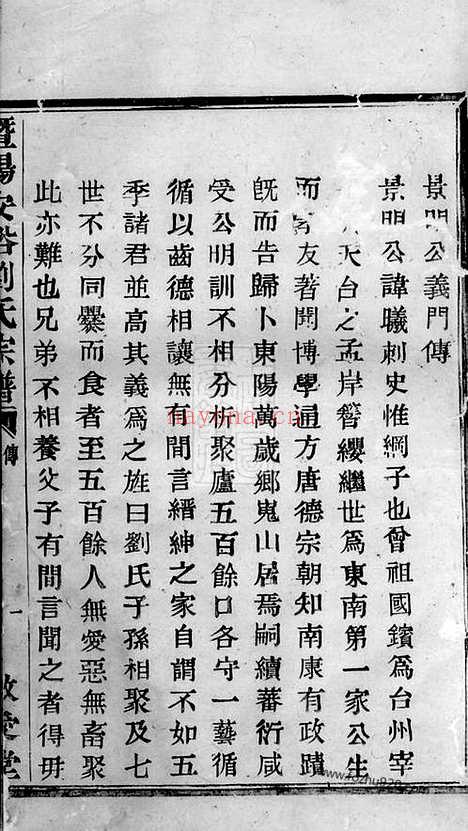 景明公義門傳
景明公諱曦刺史惟綱子也曾祖國鑌爲台州宰
天台之孟岸簪纓繼世爲東南第一家公生
而友著聞博學通方唐德宗朝知南康有政蹟
旣而告歸卜東陽萬歲鄉嵬山居焉嗣續蕃衍咸
受公明訓不相分相聚廬五百餘口各守一藝循
循以齒德相讓無有間言縉紳之家自謂不如五
季諸君並高其義爲之旌曰劉氏子孫相聚及七
世不分同爨而食者至五百餘人無愛惡無畜聚
此亦難也兄弟不相養父子有間言聞之者得毋
暨陽安谷劉氏宗譜 傳 一 敦愛堂
hayona.cn